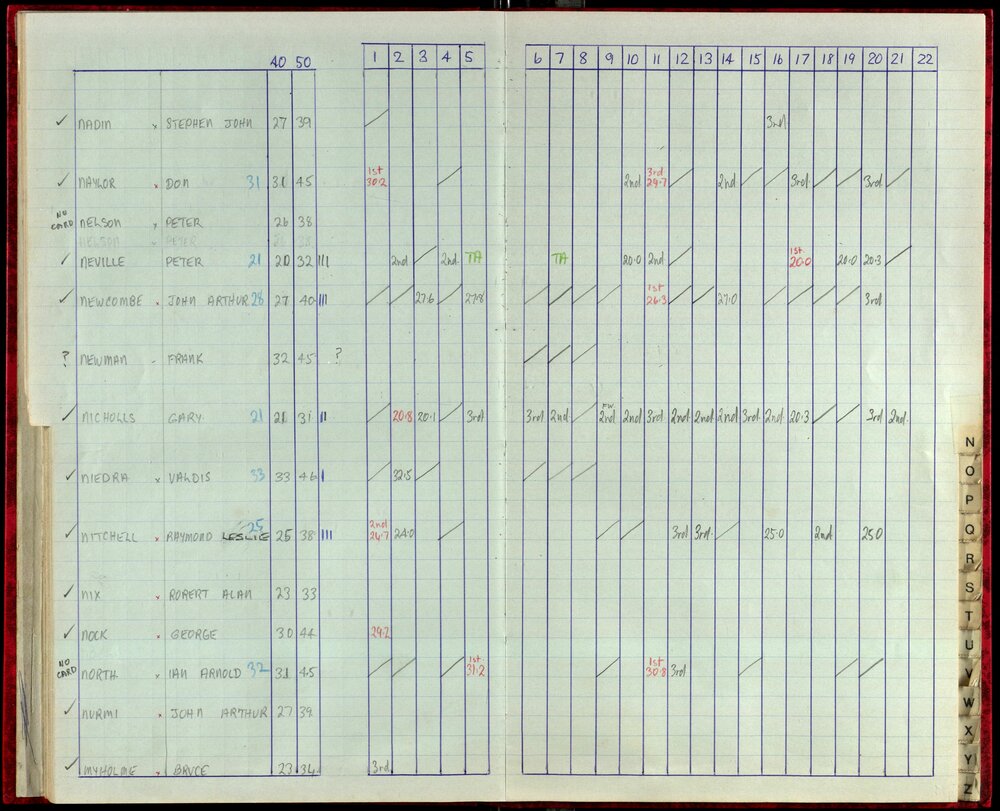 40 50 1 2 3 4 5 6 7 8 9 10 11 12 13 14 15 16 17 18 19 20 21 22
✓ NADIN x STEPHEN JOHN 27 39 / 3rd
1st 3rd
✓ NAYLOR x DON 31 31 45 30.2 / 2nd 29.7 / 2nd / / 3rd / / 3rd /
NO CARD NELSON x PETER 26 38
NELSON x PETER 26 38
1st
✓ NEVILLE PETER 21 20 32 III 2nd / 2nd TA TA 20.0 2nd / 20.0 20.0 20.3 /
1st
✓ NEWCOMBE x JOHN ARTHUR 28 27 40 III / / 27.6 / 27.8 / / / / 26.3 / / 27.0 / / / / 3rd
? NEWMAN - FRANK 32 45 ? / / /
FW
✓ NICHOLLS GARY 21 21 31 II / 20.8 20.1 / 3rd 3rd 2nd / 2nd 2nd 3rd 2nd 2nd 2nd 3rd 2nd 20.3 / / 3rd 2nd
✓ NIEDRA x VALDIS 33 33 46 I / 32.5 / / / /
25 2nd
✓ NITCHELL x RAYMOND LESLIE 25 38 III 24.7 24.0 / / / 3rd 3rd / 25.0 2nd 25.0
✓ NIX x ROBERT ALAN 23 33
✓ NOCK x GEORGE 30 44 29.2
1st 1st
NO CARD NORTH x IAN ARNOLD 32 31 45 / / / 31.2 / 30.8 3rd / / /
✓ NURMI x JOHN ARTHUR 27 39
✓ MYHOLME x BRUCE 23 34 3rd
N
O
P
Q
R
S
T
U
V
W
X
Y
Z